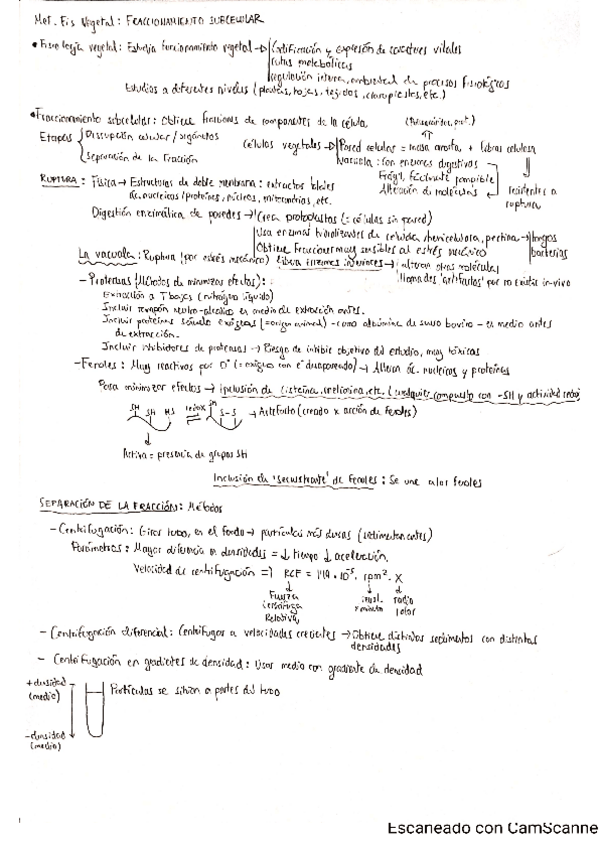 Met. Fis Vegetal: FRACCIONAMIENTO SUBCELULAR
• Fisiología vegetal: Estudia funcionamiento vegetal → Codificación y expresión de caracteres vitales
Rutas metabólicas
regulación interna, ambiental de procesos fisiológicos
Estudios a diferentes niveles (plantas, hojas, tejidos, cloroplastos, etc.)
• Fraccionamiento subcelular: Obtiene fracciones de componentes de la célula
Etapas Disrupción celular / orgánulos
Separación de la fracción
Células vegetales → Pared celular = + fibras celulosa
Vacuola: con enzimas digestivos
Frágil, fácilmente rompible
Alteración de moléculas
resistentes a
ruptura
RUPTURA: Física → Estructuras de doble membrana: extractos totales
ác. nucleicos / proteínas, núcleos, mitocondrias, etc.
Digestión enzimática de paredes → Crea protoplastos (= células sin pared)
Usa enzimas hidrolizantes de celulosa, hemicelulosa, pectina → hongos
bacterias
Obtiene fracciones muy sensibles al estrés mecánico
La vacuola: Ruptura (por estrés mecánico) libera enzimas internos → alteran otras moléculas
llamadas 'artefactos' por no existir in-vivo
- Proteasas (Métodos de minimizar efectos):
Extracción a T bajas (nitrógeno líquido)
Incluir tampón neutro-alcalino en medio de extracción antes.
Incluir proteínas exógenas (= origen animal) - como albúmina de suero bovino - en medio antes
de extracción.
Incluir inhibidores de proteasas → Riesgo de inhibir objetivo del estudio, muy tóxicas
- Fenoles: Muy reactivos por O• (= oxígeno con e⁻ desapareado) → Alteran ác. nucleicos y proteínas
Para minimizar efectos → inclusión de cisteína, etc. (cualquier compuesto con -SH y actividad redox)
SH SH HS redox SH S-S → Artefacto (creado x acción de fenoles)
Activa = presencia de grupos SH
Inclusión de 'secuestrante' de Fenoles: Se une a los fenoles
SEPARACIÓN DE LA FRACCIÓN: Métodos
- Centrifugación: Giras tubo, en el fondo → partículas más densas (sedimentan antes)
Parámetros: Mayor diferencia en densidades = ↓ tiempo ↓ aceleración.
Velocidad de centrifugación ⇒ RCF = 1'119 · 10⁻⁵ · rpm² · X
Fuerza
centrífuga
Relativa
radio
rotor
- Centrifugación diferencial: Centrifugar a velocidades crecientes → Obtiene distintos sedimentos con distintas
densidades
- Centrifugación en gradientes de densidad: Usar medio con gradiente de densidad
+ densidad
(medio)
Partículas se sitúan a partes del tubo
- densidad
(medio)
Escaneado con CamScanne